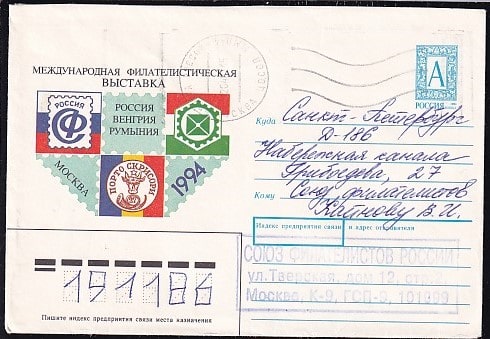 МЕЖДУНАРОДНАЯ ФИЛАТЕЛИСТИЧЕСКАЯ
ВЫСТАВКА
РОССИЯ
Ф
РОССИЯ
ВЕНГРИЯ
РУМЫНИЯ
МОСКВА
ПОРТО СКРИСОРИ
1994
А
РОССИЯ
Куда Санкт-Петербург
Д-186
Набережная канала
Грибоедова, 27
Кому Союз филателистов
В. И.
Индекс предприятия связи и адрес отправителя
СОЮЗ ФИЛАТЕЛИСТОВ РОССИИ
ул. Тверская, дом 12, стр.
Москва, К-9, ГСП-3, 101999
191186
Пишите индекс предприятия связи места назначения